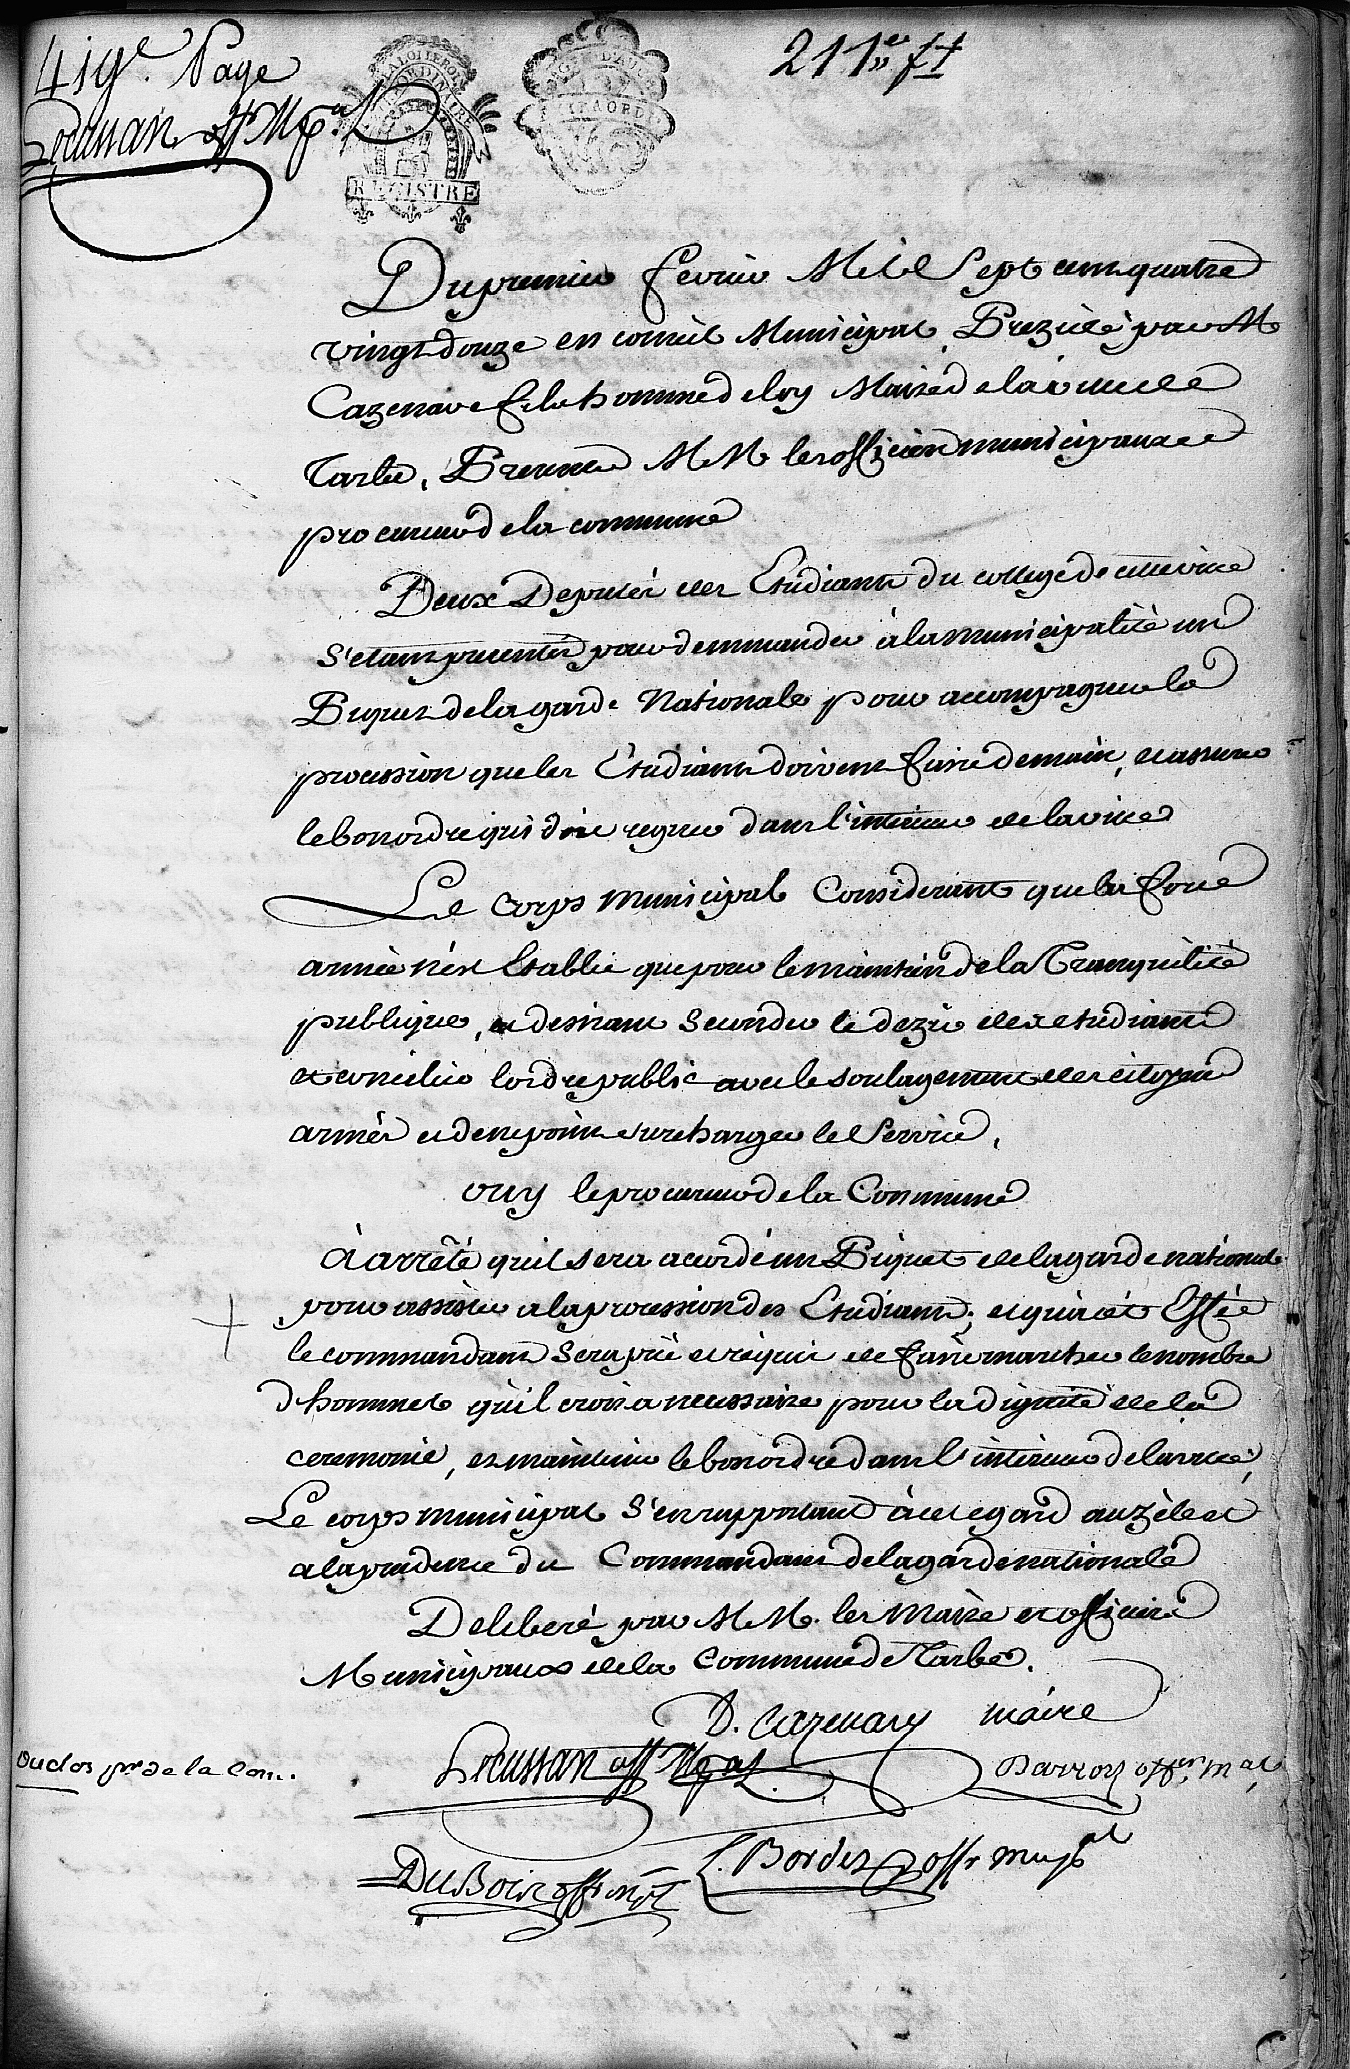 419e. Page
211e ft
Lecussan off Mpal
LA LOI LE ROI
EXTRAORDINAIRE
REGISTRE
EXTRAORD
Du premier fevrier Mil Sept cens quatre
vingt douze en conseil Municipal Prezidé par M
Cazenave fils homme de loy Maire de la ville de
Tarbe, Presents M M les officiers municipaux et
procureur de la commune
Deux Deputés des Etudiants du college de cette ville
S'etant presentés pour demmander à la municipalité un
Piquet de la garde Nationale pour accompagner la
procession que les Etudiants doivent faire demain, et assurer
le bon ordre qui doit regner dans l'interieur de la ville
Le Corps Municipal Considerant que la force
armée n'est Etablie que pour le maintien de la Tranquilité
publique, et desirant seconder le dezir des etudiants
et concilier lordre public avec le soulagement des citoyens
armés et de ne point surcharger le Service,
ouy le procureur de la Commune
à arrêté qu'il sera accordé un Piquet de la garde nationale
pour assister a la procession des Etudiants; et qu'a cet Effet
le commandant sera prié et requis de faire marcher le nombre
d'hommes qu'il croira necessaire pour la dignité de la
ceremonie, et maintenir le bon ordre dans l'interieur de la ville,
Le corps municipal s'en rapportant à cet egard au zèle et
a la prudence du Commandant de la garde nationale
Deliberé par M M. les Maire et officiers
Municipaux de la Commune de Tarbe.
D. Cazenave maire
Lecussan off Mpal
Darroy offer. mal
ouclos pr de la Com.
DuBois off mpl
L. Bordes offr mupal